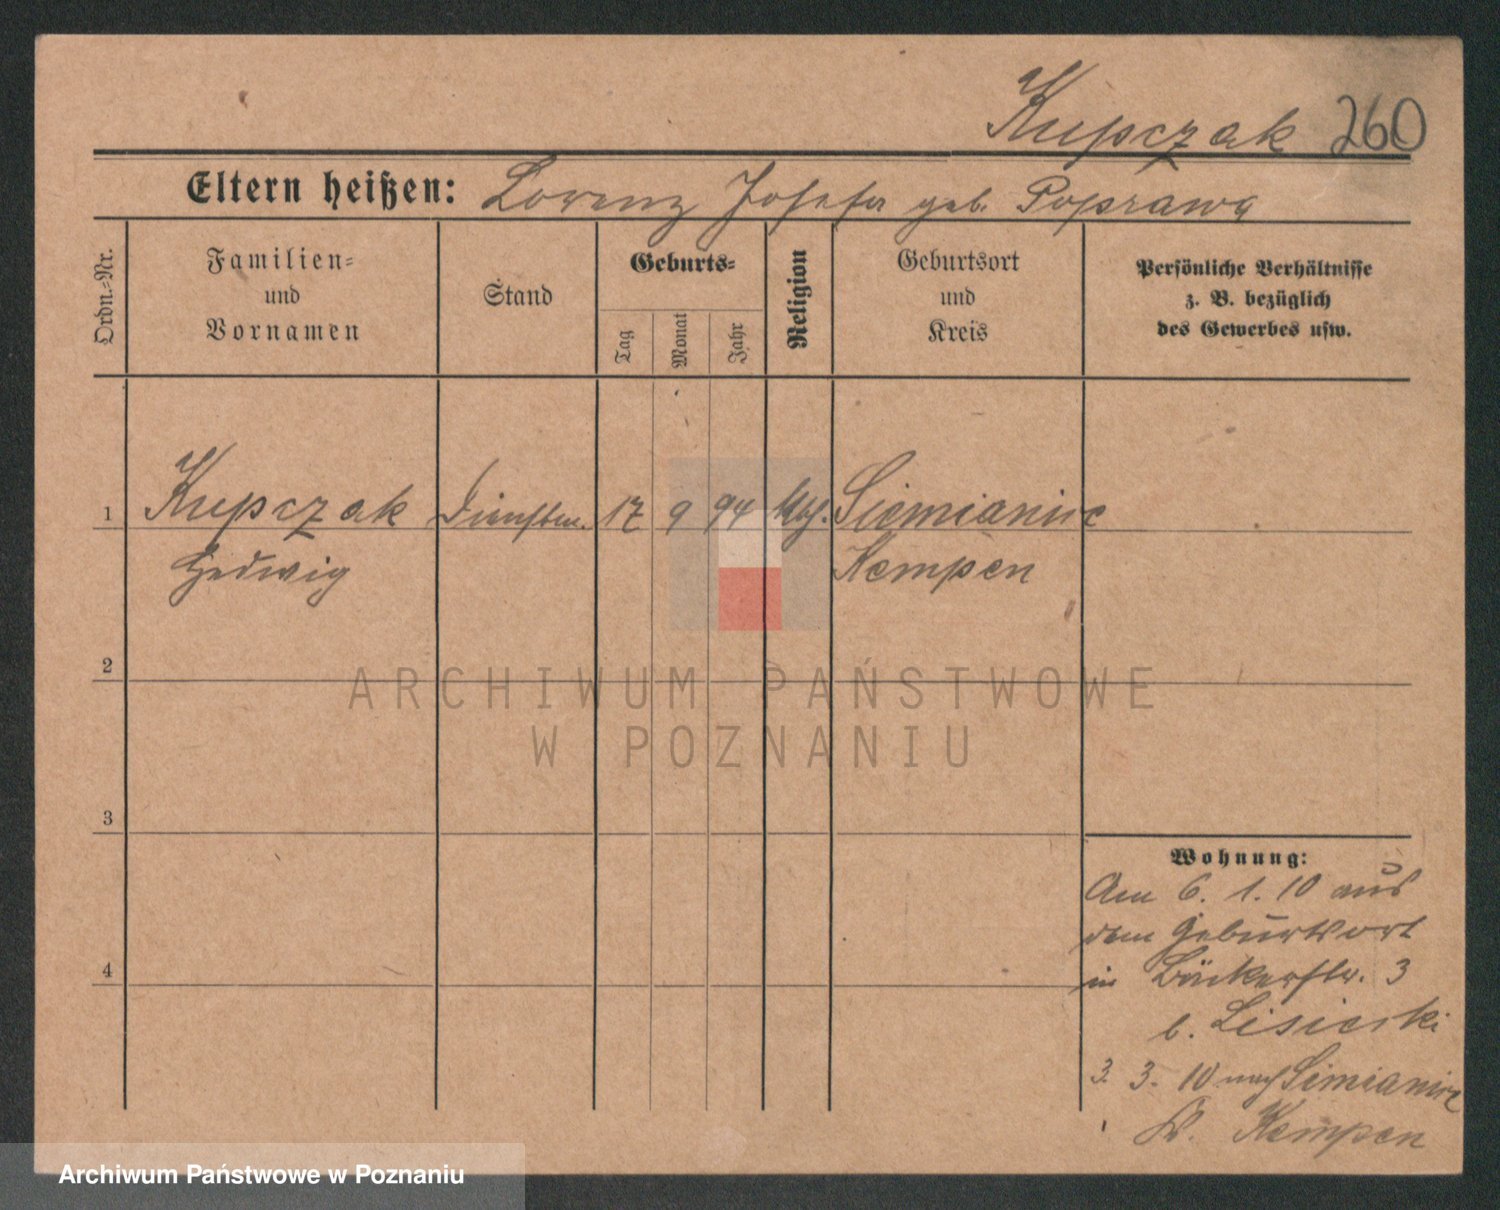 Kupczak 260
Eltern heißen: Lorenz Josefa geb. Poprawa
Ordn.-Nr.
Familien-
und
Vornamen
Stand
Geburts-
Tag
Monat
Jahr
Religion
Geburtsort
und
Kreis
Persönliche Verhältnisse
z. B. bezüglich
des Gewerbes usw.
1 Kupczak 17 9 94 Siemianice
Hedwig Kempen
2
ARCHIWUM PAŃSTWOWE
W POZNANIU
3
4
Wohnung:
Am 6. 1. 10 aus
dem Geburtsort
in Bäckerstr. 3
b. Lisiecki
3. 3. 10 nach Simianice
K. Kempen
Archiwum Państwowe w Poznaniu